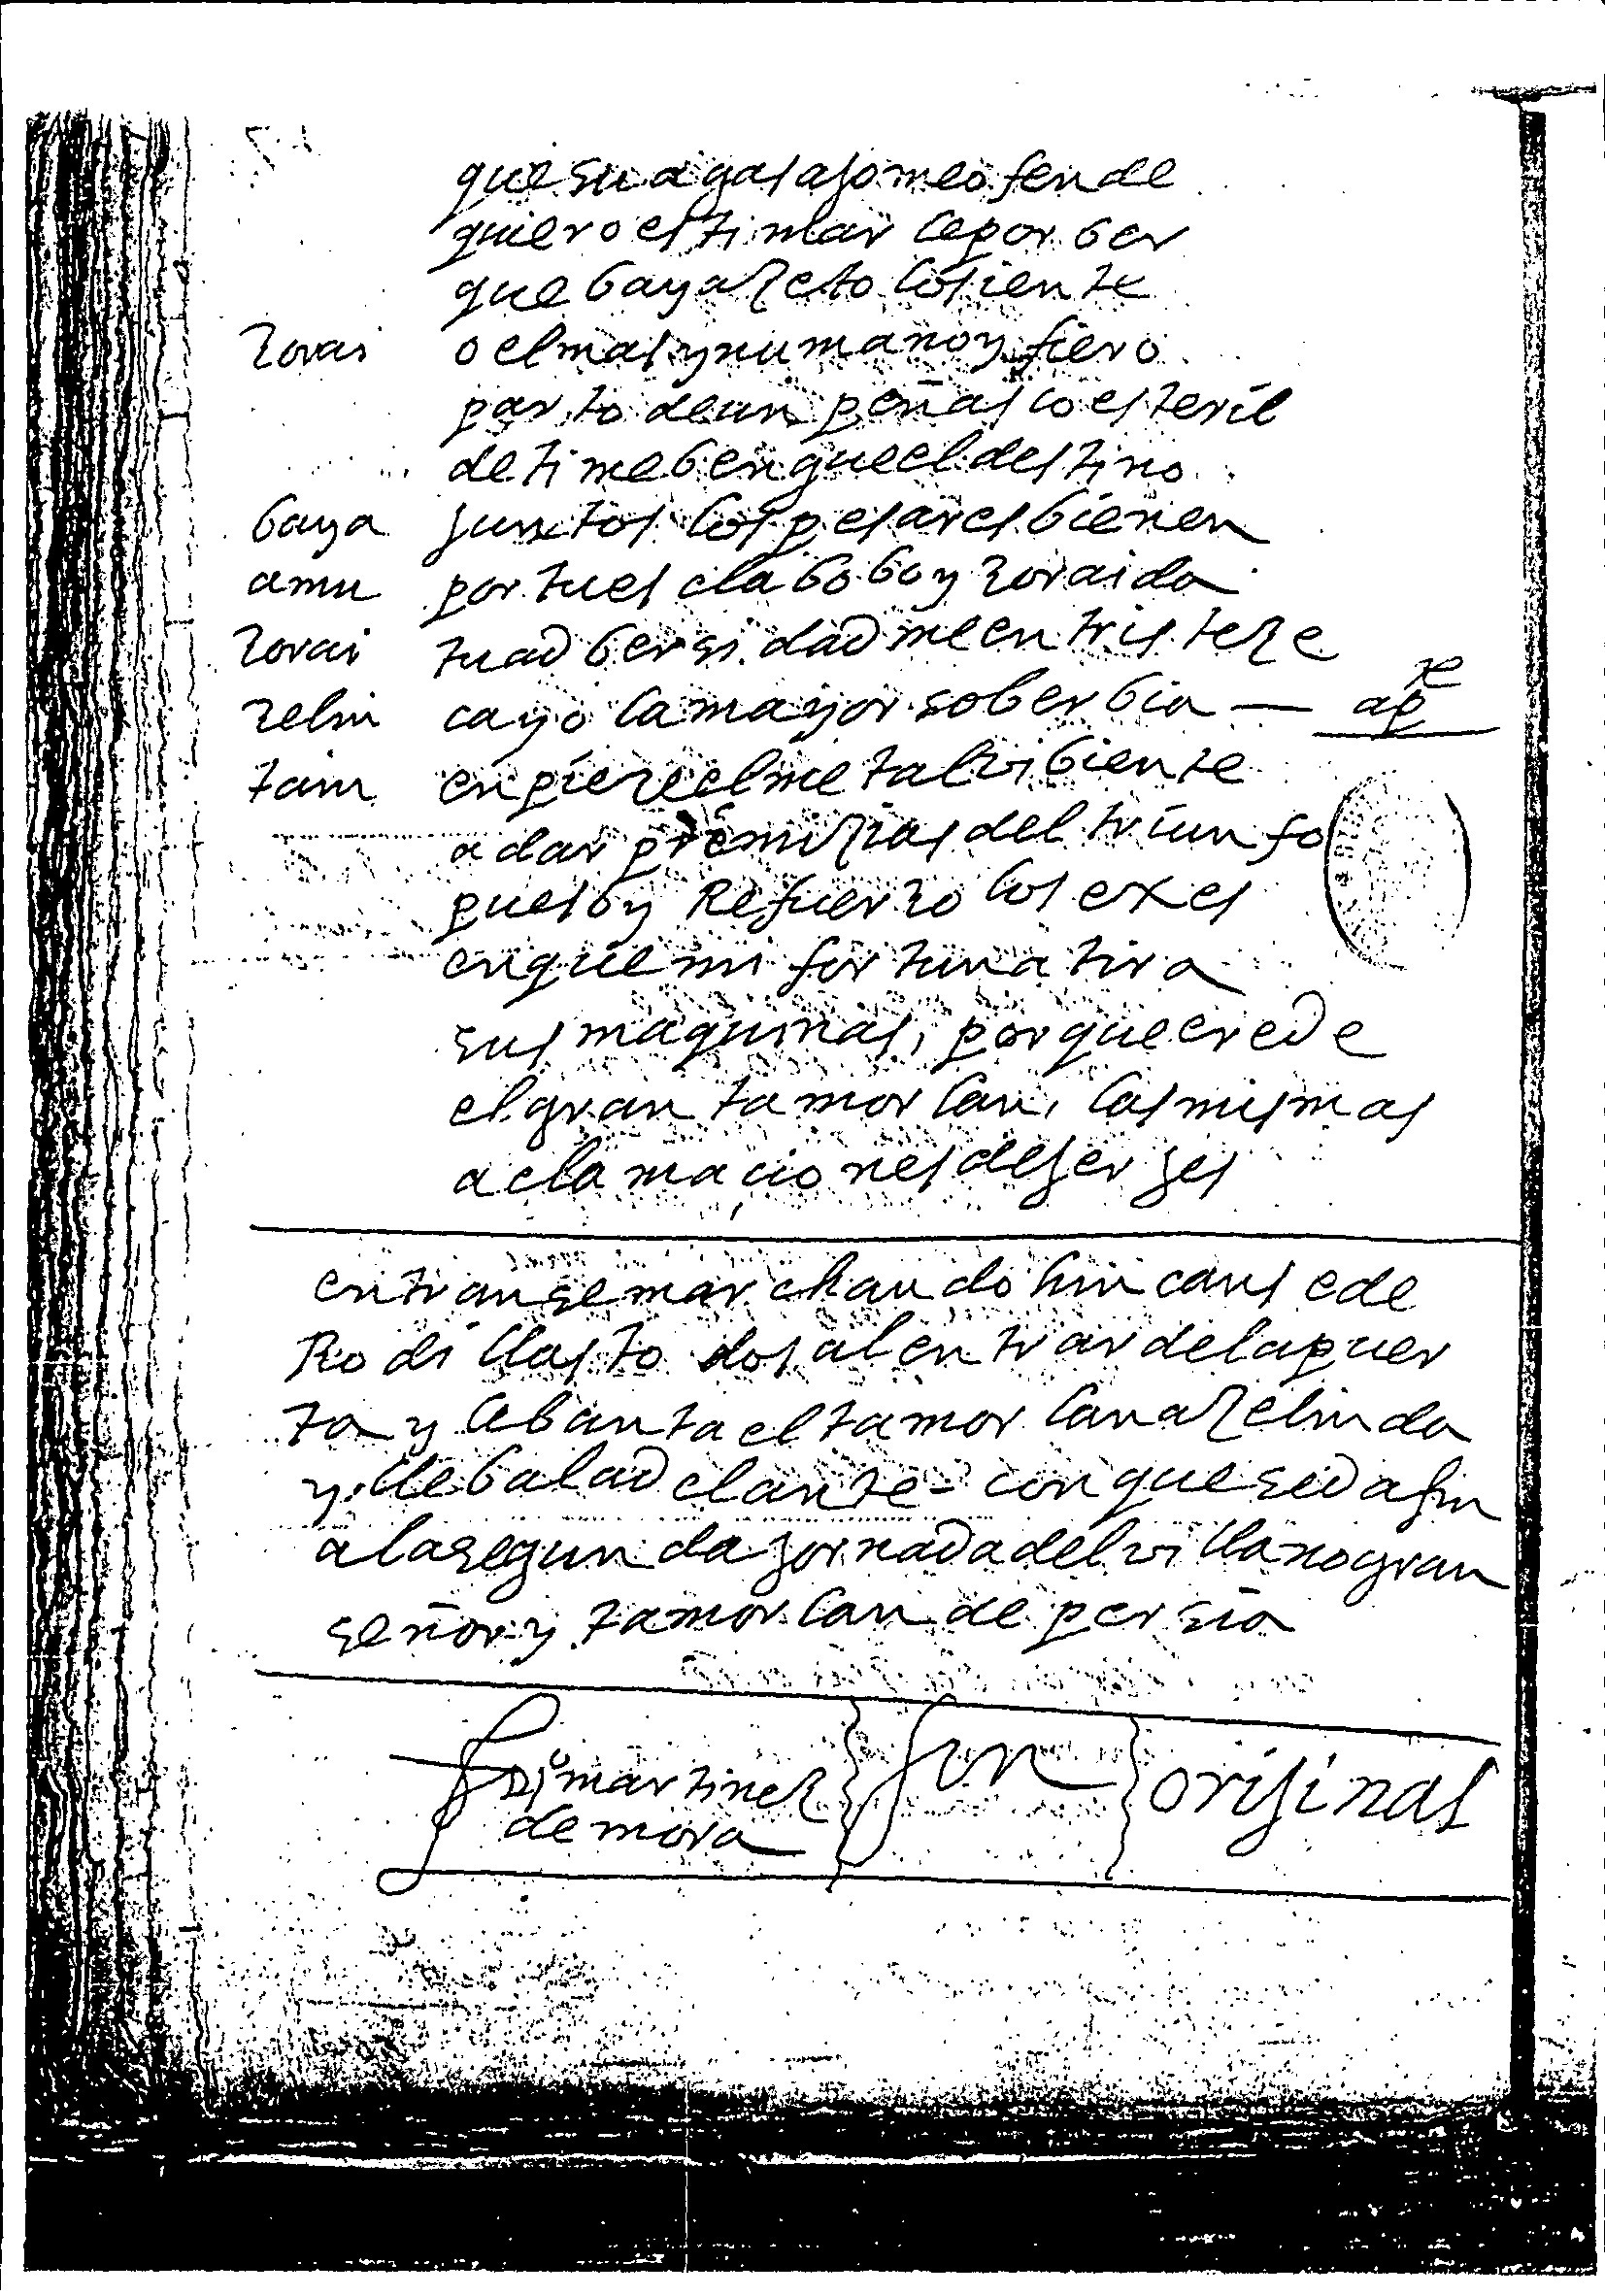 que su agasajo me ofende
quiero estimarle por ber
que bayaceto lo siente
zorai o el mas ynumano y fiero
parto de un peñasco esteril
de ti me bengue el destino
baya juntos los pesares bienen
amu por tu esclabo boy zoraida
zorai tu adbersidad me entristeze
zelin cayo la mayor soberbia — ap te
tam enpieze el metal vibiente
a dar primizias del triunfo
pues oy Refuerzo los exes
en que mi fortuna tira
sus maquinas, porque erede
el gran tamorlan, las mismas
aclamaciones de jerjes
entranse marchando hincanse de
Rodillas todos al entrar de la puer
ta y lebanta el tamorlan a zelinda
y lleba la adelante - con que se da fin
a la segunda jornada del villano gran
señor y tamorlan de persia
martinez
de mora
son
orijinal